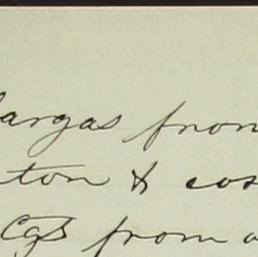 argas from
ton & cos
from a